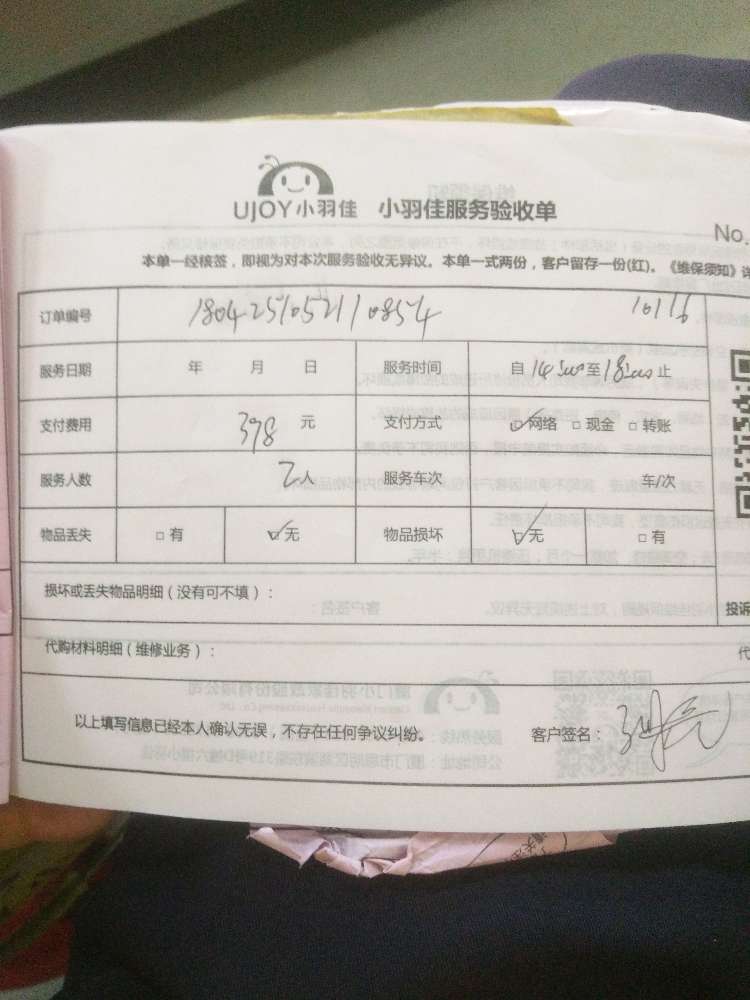 UJOY小羽佳 小羽佳服务验收单
No.
本单一经核签，即视为对本次服务验收无异议。本单一式两份，客户留存一份(红)。《维保须知》详
订单编号 1804251052110854 10116
服务日期 年 月 日 服务时间 自 14:00 至 18:00 止
支付费用 398 元 支付方式 ☑网络 □现金 □转账
服务人数 2人 服务车次 车/次
物品丢失 □有 ☑无 物品损坏 ☑无 □有
损坏或丢失物品明细（没有可不填）：
投诉
代购材料明细（维修业务）： 代
以上填写信息已经本人确认无误，不存在任何争议纠纷。 客户签名：